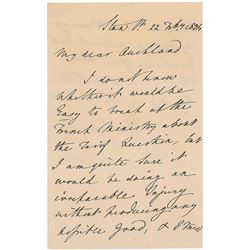 My dear Auckland
I do not know
whether it would be
Easy to break up the
French Ministry about
the Question, but
I am quite sure it
would be doing an
irreparable Injury
without producing any
possible good, &